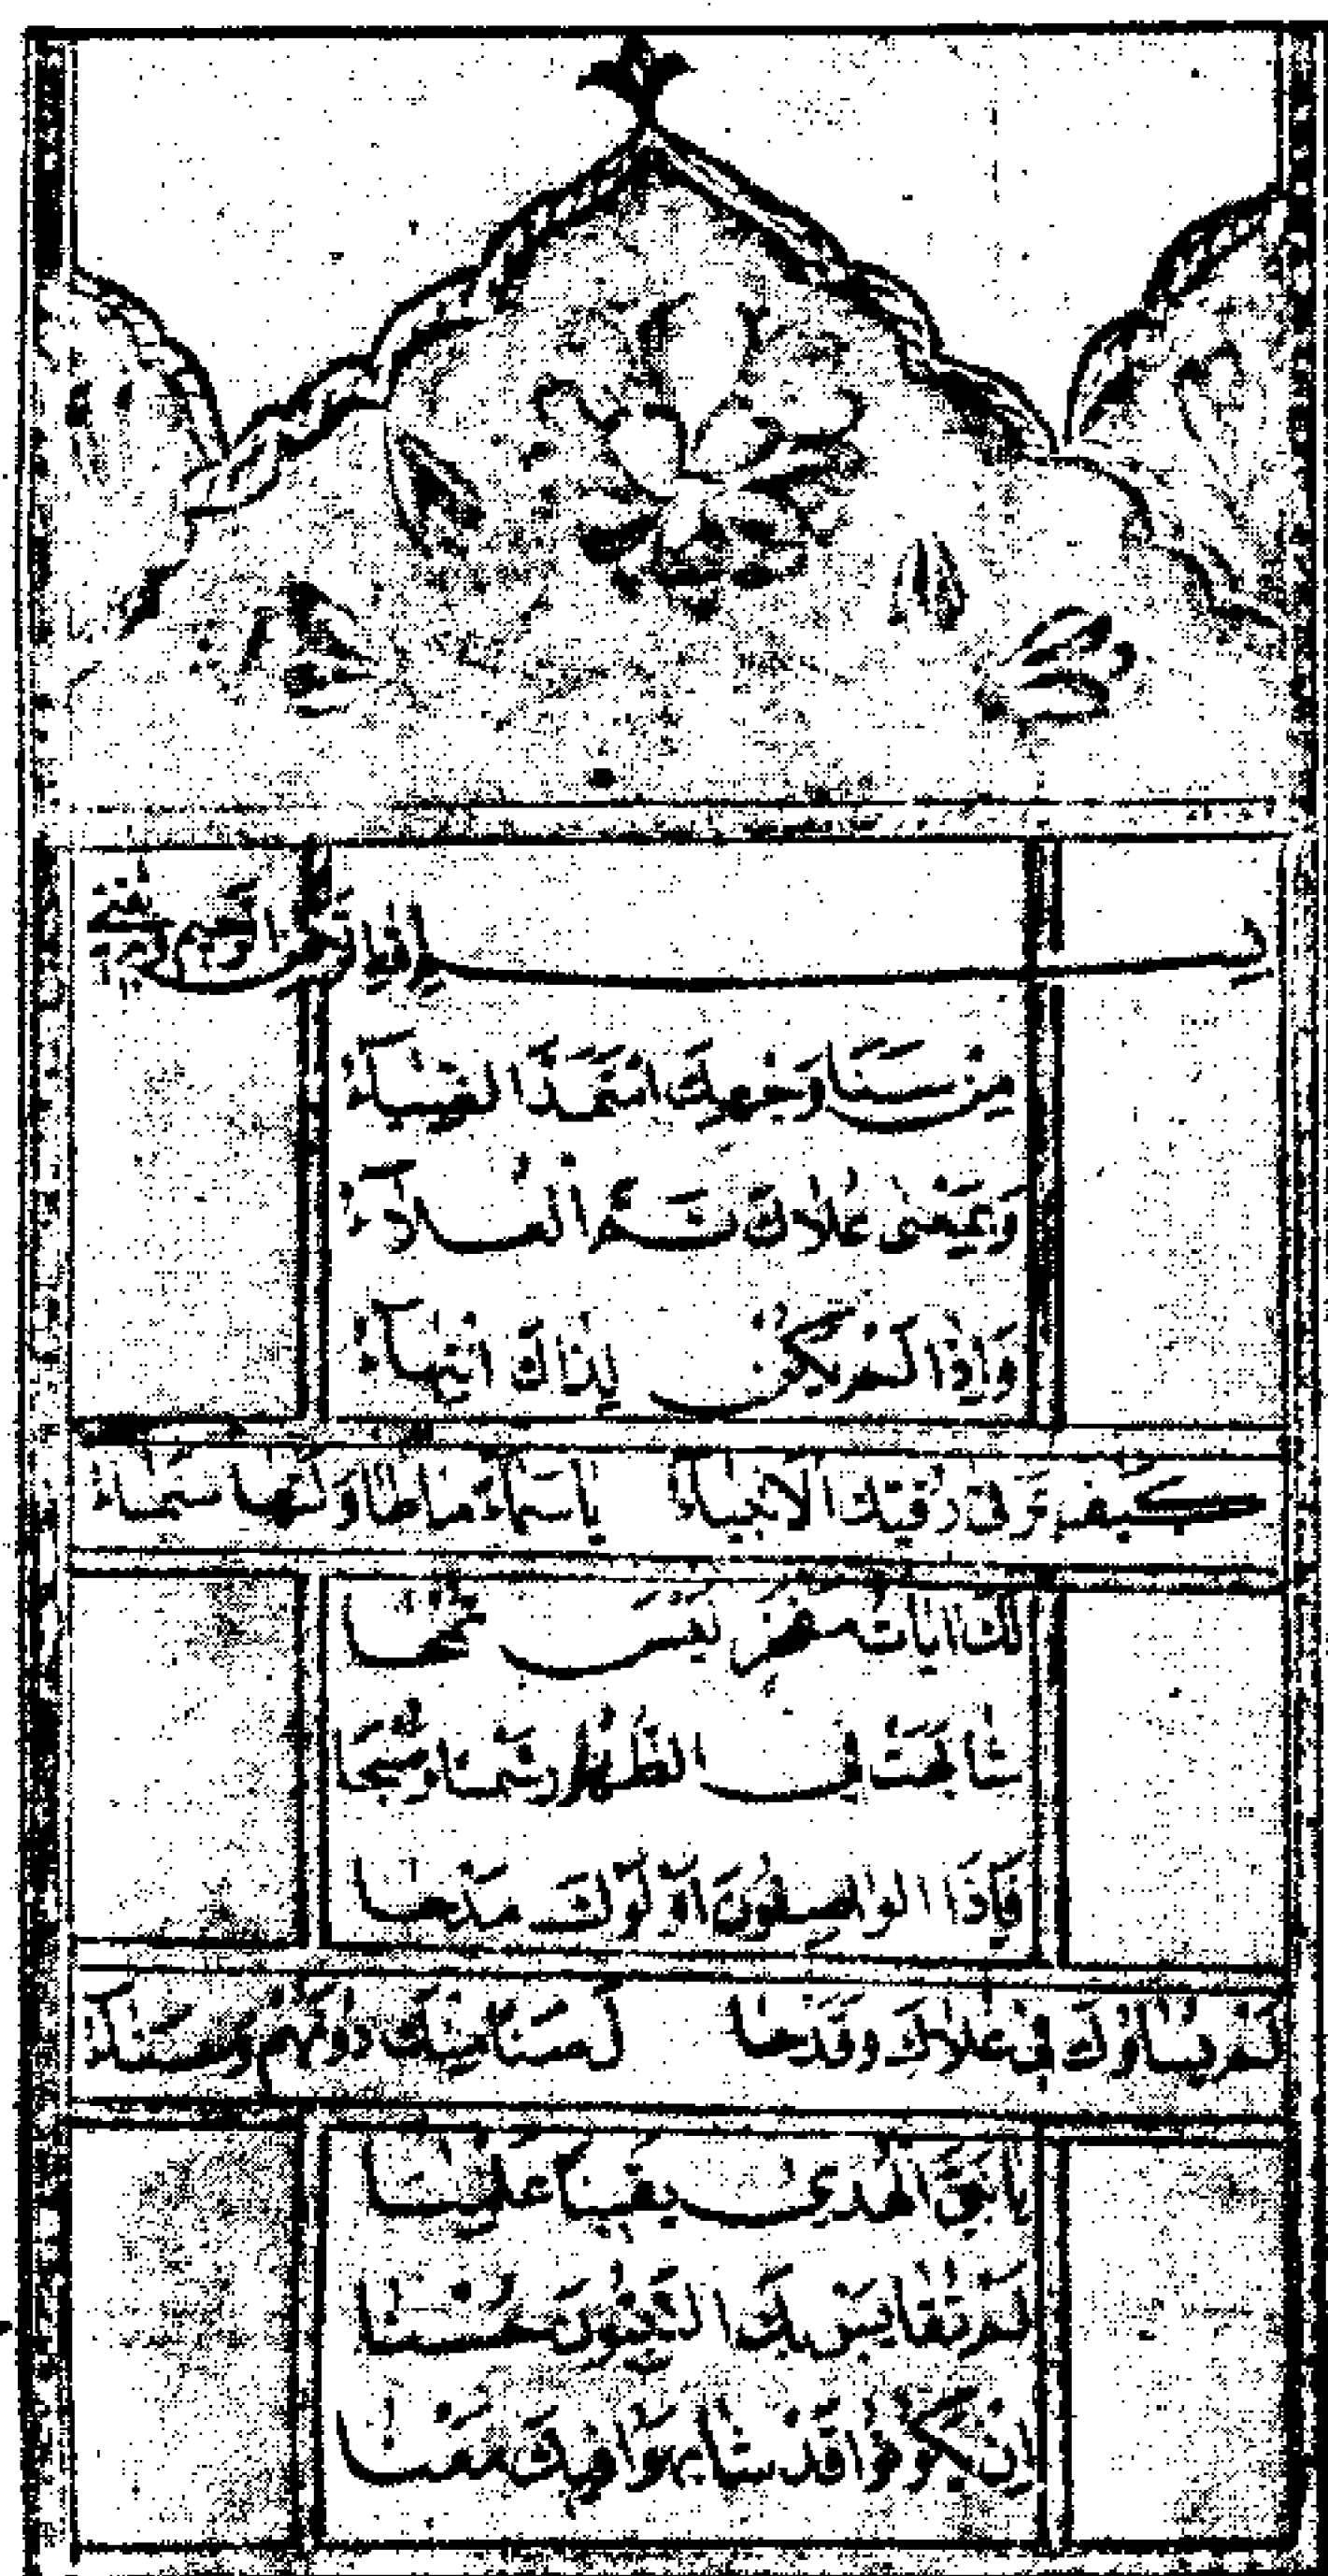 بسم الله الرحمن الرحيم وبه ثقتي
مِن سَنَا وَجْهِكَ اسْتَمَدَّ الضِّيَاءُ
وَبِمَعْنَى عُلَاكَ تَمَّ العَلَاءُ
وَإِذَا لَمْ يَكُنْ لِذَاكَ انْتِهَاءُ
كَيْفَ تَرْقَى رُقِيَّكَ الأَنْبِيَاءُ يَا سَمَاءً مَا طَاوَلَتْهَا سَمَاءُ
لَكَ آيَاتُ مَفْخَرٍ لَيْسَ تُمْحَا
شَابَهَتْ فِي الظُّهُورِ شَمْسًا وَصُبْحَا
فَإِذَا الوَاصِفُونَ أَوْلَوْكَ مَدْحَا
لَمْ يُسَاوُوكَ فِي عُلَاكَ وَقَدْ حَا لَ سَنًا مِنْكَ دُونَهُمْ وَسَنَاءُ
يَا نَبِيَّ الهُدَى
لَمْ تُقَايَسْ بِكَ النَّبِيُّونَ حُسْنَا
إِنْ يَكُونُوا قَدْ شَابَهُوا فِيكَ مَعْنَا